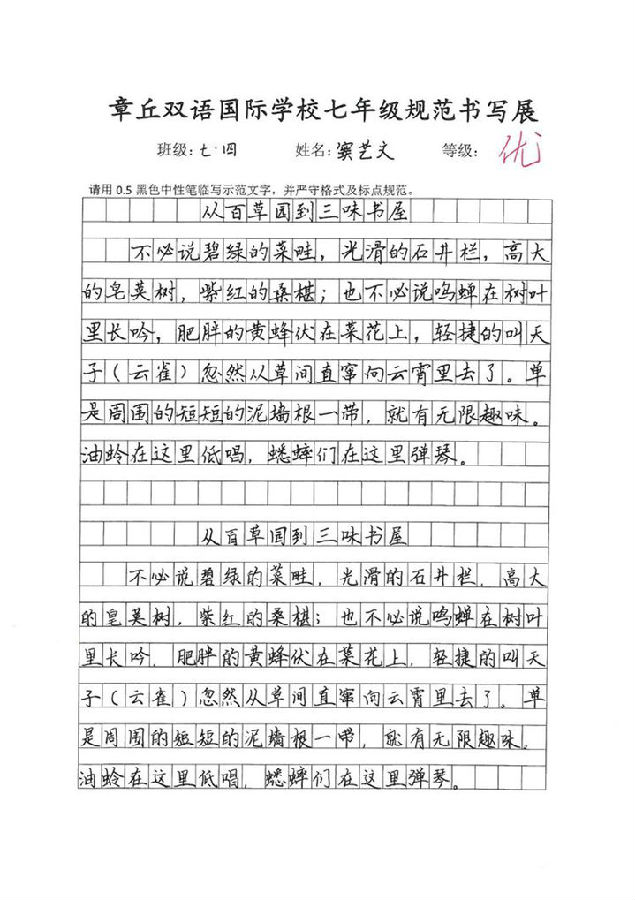 章丘双语国际学校七年级规范书写展
班级：七·四 姓名：窦艺文 等级：优
请用 0.5 黑色中性笔临写示范文字，并严守格式及标点规范。
从百草园到三味书屋
不必说碧绿的菜畦，光滑的石井栏，高大
的皂荚树，紫红的桑椹；也不必说鸣蝉在树叶
里长吟，肥胖的黄蜂伏在菜花上，轻捷的叫天
子（云雀）忽然从草间直窜向云霄里去了。单
是周围的短短的泥墙根一带，就有无限趣味。
油蛉在这里低唱，蟋蟀们在这里弹琴。
从百草园到三味书屋
不必说碧绿的菜畦，光滑的石井栏，高大
的皂荚树，紫红的桑椹；也不必说鸣蝉在树叶
里长吟，肥胖的黄蜂伏在菜花上，轻捷的叫天
子（云雀）忽然从草间直窜向云霄里去了，单
是周围的短短的泥墙根一带，就有无限趣味，
油蛉在这里低唱，蟋蟀们在这里弹琴。